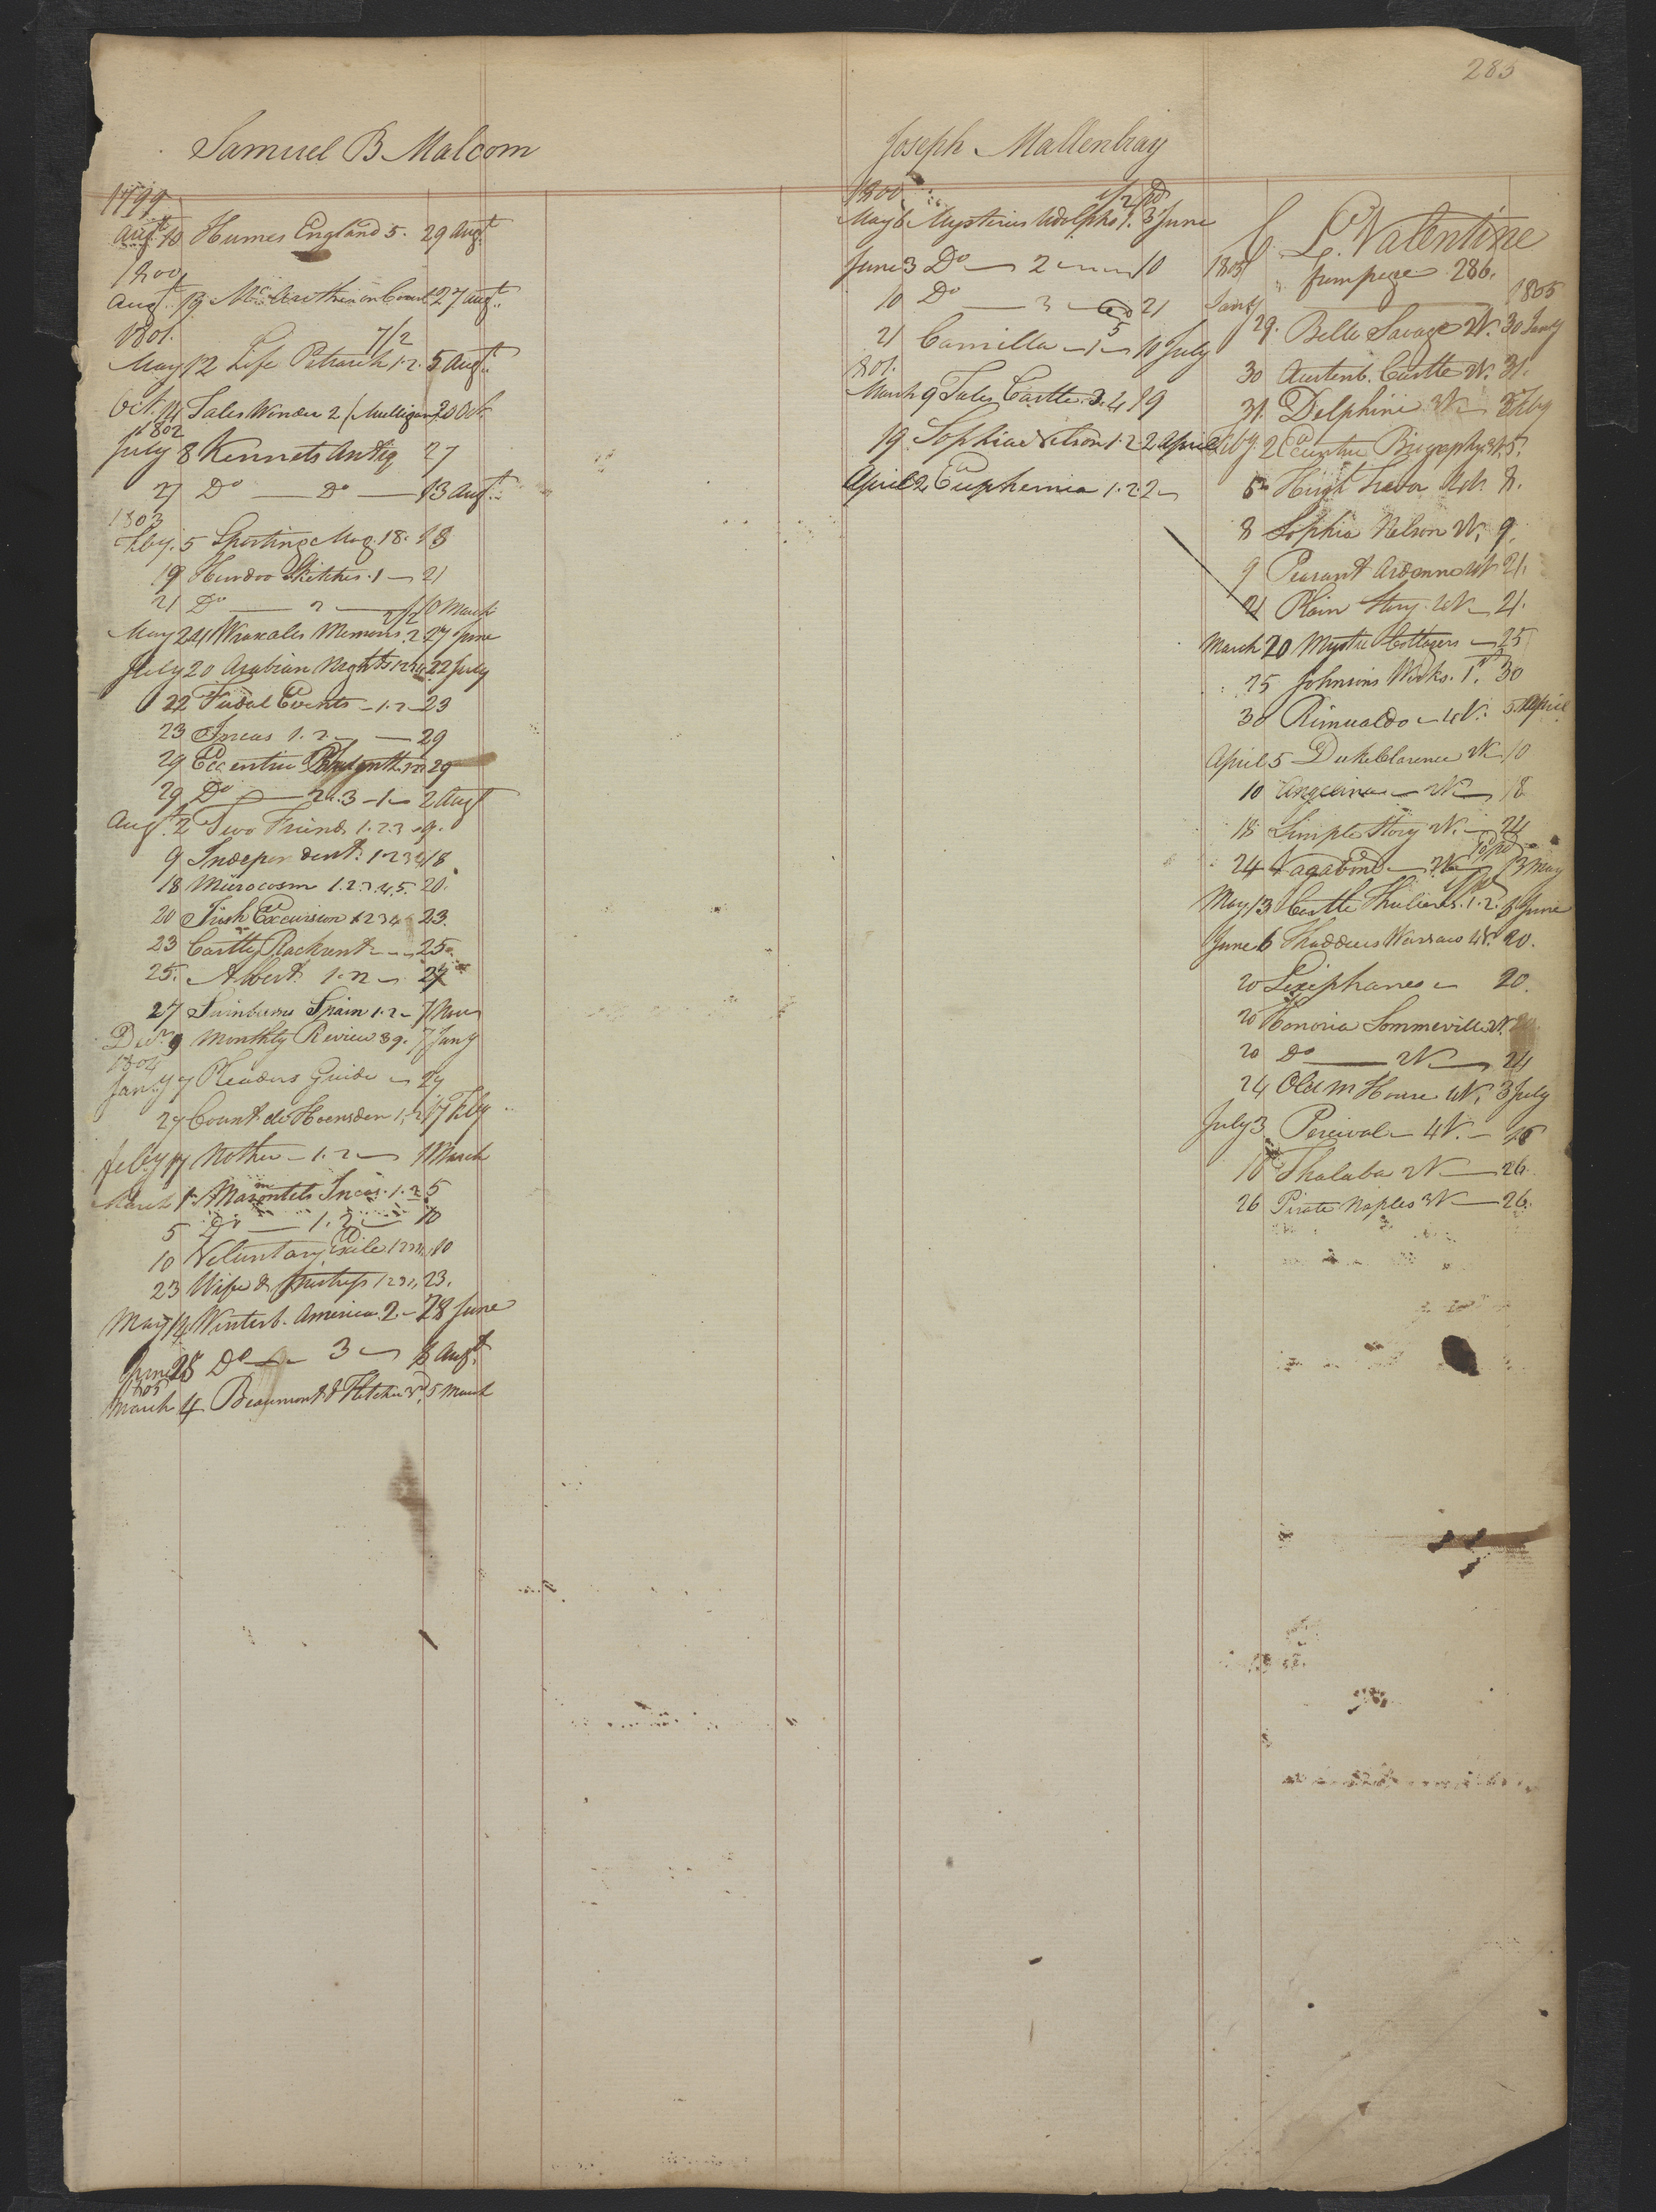 283
Samuel B Malcom
1799
Augt 10 Humes England 5. 29 Augt
1800
Augt 19 McArthur on Court 27 Augt
1801. 7/2
May 12 Life Petrarch 1.2. 5 Augt
Oct. 14 Tales Wonder 2 (Mulligan) 20 Oct.
1802
July 8 Kennets Antiq 27
27 Do — Do — 13 Augt
1803
Feby. 5 Sporting Mag. 18. 18
19 Hindoo Sketches. 1 — 21
21 Do — 2 — 10 March
2/2
May 24 Wraxales Memoirs. 2 27 June
July 20 Arabian Nights 1234 22 July
22 Fudal Events — 1. 2 — 23
23 Incas 1. 2 — 29
29 Eccentric 29
29 Do — 2d. 3 — 1 — 2 Augt
Augt. 2 Two Friends 1. 2. 3 9.
9 Independent. 1 2 3 4 18
18 Microcosm 1. 2. 3. 4. 5. 20.
20 Irish Excursion 1 2 3 4 23.
23 Castle Rackrent — 25
25. Albert 1. 2 — 27
27 Swinburns Spain 1. 2 — 7 Nov
Decr 9 Monthly Review 39. 7 Jany
1804
Jany 7 Readers Guide — 27
27 Count de Hoensdern 1. 2 17 Feby
Feby 17 Mother — 1. 2 — 1 March
March 1 Marmontels Incas. 1. 2 5
5 Do — 1. 2 — 10
10 Voluntary Exile 1 2 3 4 10
23 Wife & Mistress 1 2 3 4, 23.
May 14 Winterb. America. 2. — 28 June
June 28 Do — 3 — 8 Augt.
1805
March 4 Beaumont & Fletcher 3d, 5 March
Joseph Mallenbray
1800 1/2 pd
May 6 Mysteries Udolpho 1. 3 June
June 3 Do — 2 — 10
10 Do — 3 — 21
21 Camilla — 1 — 5 10 July
1801.
March 9 Tales Castle. 3. 4 19
19 Sophia Nelson 1. 2 2 April
April 2 Euphemia 1. 2. 2
C. L. Valentine
from page 286.
1805 1805
Jany 29. Belle Savage 2V. 30 Jany
30 Austenb. Castle 2V. 31.
31 Delphine 3V — 2 Feby
Feby. 2 Eccentric Biography 3V. 5.
5 Hugh Trevor 4V. 8.
8 Sophia Nelson 2V. 9.
9 Peasant Ardenne 4V. 21.
21 Plain Story. 4V — 21.
March 20 Mystic Cottagers — 25
25 Johnsons Works. 1st. 30
30 Rimualdo — 4V. 5 April
April 5 Duke Clarence 4V — 10
10 Angelina — 2V — 18
18 Simple Story 2V. — 24
24 Vagabond — 2V — 13 May
May 13 Castle 1. 2. 6 June
June 6 Thaddeus Warsaw 4V. 20.
20 Lexiphanes — 20.
20 Honoria Sommerville 2V. 20.
20 Do — 2V — 24
24 Old M House 4V. 3 July
July 3 Percival — 4V. — 16
16 Thalaba 2V — 26.
26 Pirate Naples 3V — 26.